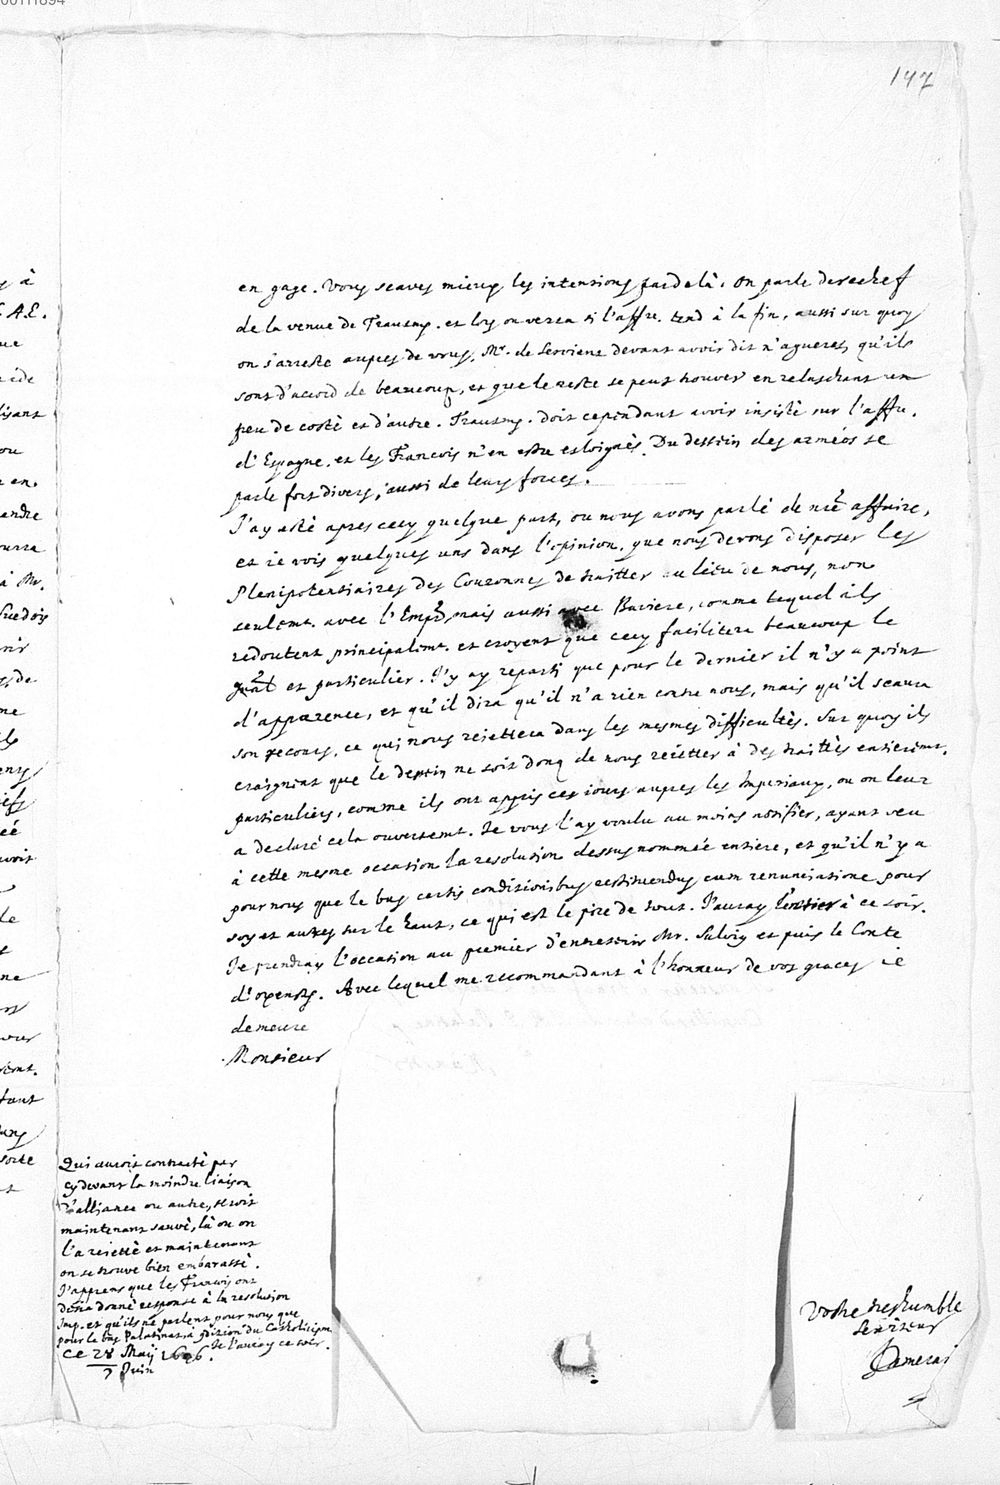 00111894
147
en gage. Vous scaves mieux les intensions pardelà. On parle derechef
de la venue de Trautm. et lors on verra si l'affre. tend à la fin, aussi sur quoy
on s'arreste aupres de vous, Mr. de Servient devant avoir dit n'agueres, qu'ils
sont d'accord de beaucoup, et que le reste se peut trouver en relaschant un
peu de costé et d'autre. Trautm. doit cependant avoir insisté sur l'affre.
d'Espagne, et les Francois n'en estre esloignés. Du dessein des armées se
parle fort divers, aussi de leurs forces.
J'ay esté apres cecy quelque part, ou nous avons parlé de nre affaire,
et ie vois quelques uns dans l'opinion, que nous devons disposer les
Plenipotentiaires des Couronnes de traitter au lieu de nous, non
seulemt. avec l'Empr, mais aussi avec Baviere, comme lequel ils
redoutent principalemt. et croyent que cecy facilitera beaucoup le
gnāl et particulier. J'y ay reparti que pour le dernier il n'y a point
d'apparence, et qu'il dira qu'il n'a rien contre nous, mais qu'il scaura
son recours, ce qui nous reiettera dans les mesmes difficultés. Sur quoy ils
craignent que le dessin ne soit donq de nous reietter à des traittés entieremt.
particuliers, comme ils ont appris ces iours aupres les Imperiaux, ou on leur
a declaré cela ouvertemt. Je vous l'ay voulu au moins notifier, ayant veu
à cette mesme occasion la resolution dessus nommée entiere, et qu'il n'y a
pour nous que le bas certis conditionibus restituendus cum renunciatione pour
soy et autres sur le haut, ce qui est le pire de tout. J'auray l'entier à ce soir.
Je prendray l'occasion au premier d'entretenir Mr. Salvig et puis le Conte
d'Oxenst. Avec lequel me recommandant à l'honneur de vos graces ie
demeure
Monsieur
Qui auroit contracté par
cy devant la moindre liaison
d'alliance ou autre, seroit
maintenant sauvé, là ou on
l'a reietté et maintenant
on se trouve bien embarassé.
J'apprens que les Francois ont
desia donné response à la resolution
Imp. et qu'ils ne parlent pour nous que
pour le bas Palatinat à condition du Catholicism.
Je l'auray ce soir.
Ce 28 Maij 1646.
7 Juin
Vostre treshumble
Serviteur
Camerar